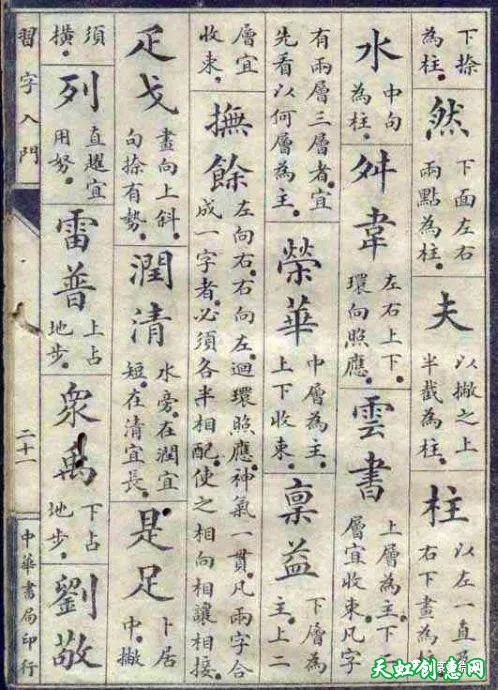 下捺
為柱。
然
下面左右
兩點為柱。
夫
以撇之上
半截為柱。
柱
以左一直及
右下畫為柱。
水
中句
為柱。
舛韋
左右上下。
環向照應。
雲書
上層為主。下二
層宜收束。凡字
有兩層三層者。宜
先看以何層為主。
榮華
中層為主。
上下收束。
稟益
下層為
主。上二
層宜
收束。
撫餘
左向右。右向左。迴環照應。神氣一貫。凡兩字合
成一字者。必須各半相配。使之相向相讓相接。
疋戈
畫向上斜。
句捺有勢。
潤清
水旁。在潤宜
短。在清宜長。
是足
卜居
中。撇
須
橫。
列
直趯宜
用努。
雷普
上占
地步。
衆禹
下占
地步。
劉敬
習字入門
二十一
中華書局印行
天虹创意网